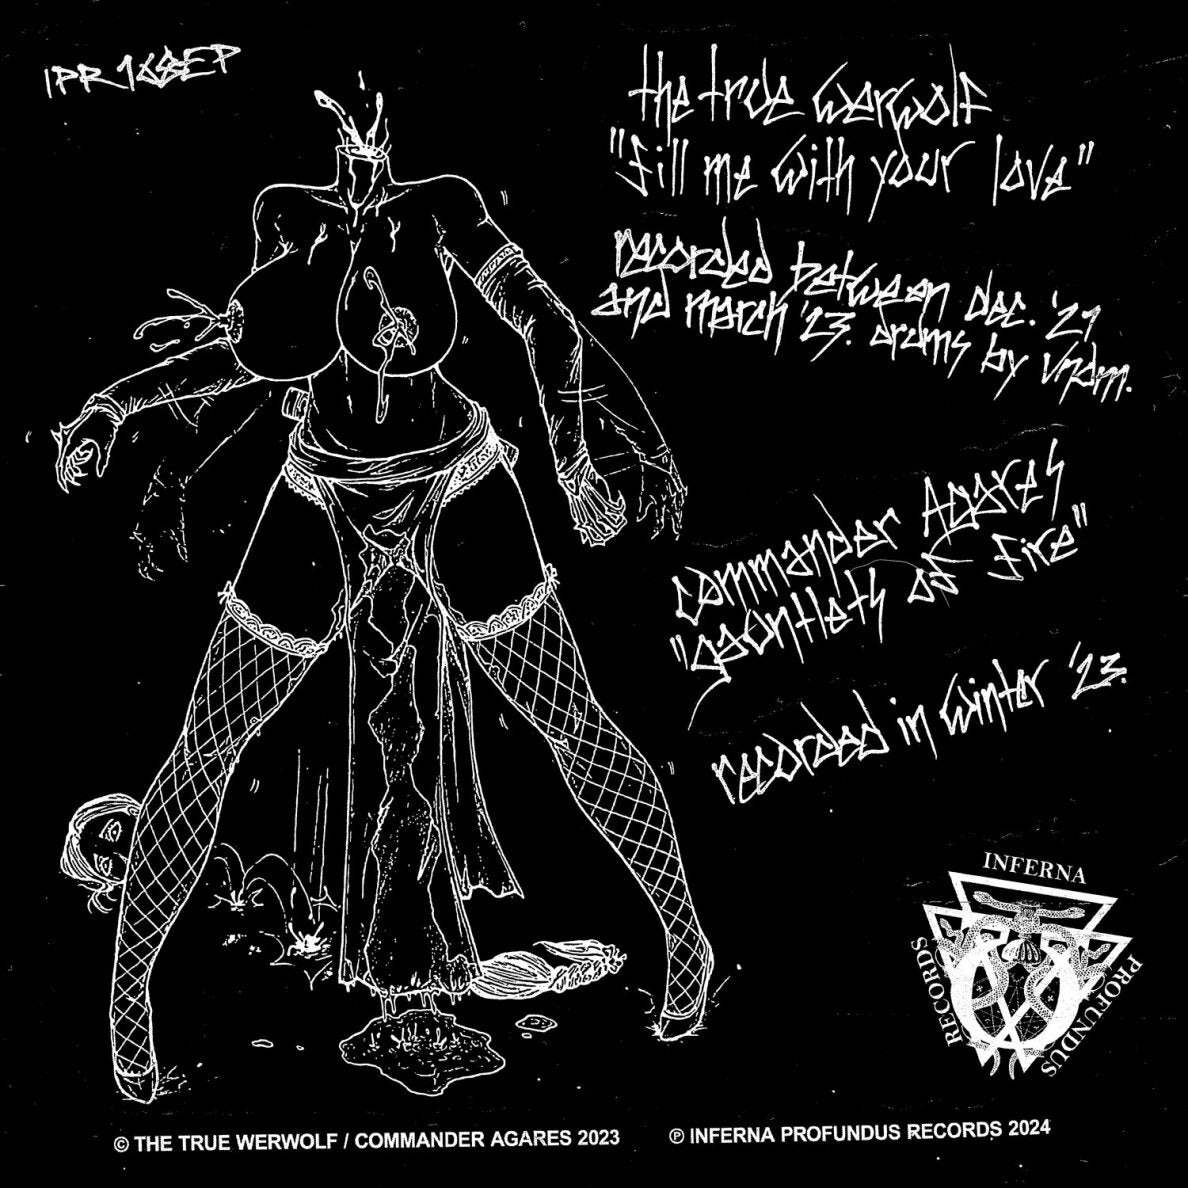 IPR168EP
the true werwolf
"fill me with your love"
recorded between dec. '21
and march '23. drums by vndm.
commander Agares
"gauntlets of fire"
recorded in winter '23.
INFERNA
PROFUNDUS
RECORDS
© THE TRUE WERWOLF / COMMANDER AGARES 2023
℗ INFERNA PROFUNDUS RECORDS 2024